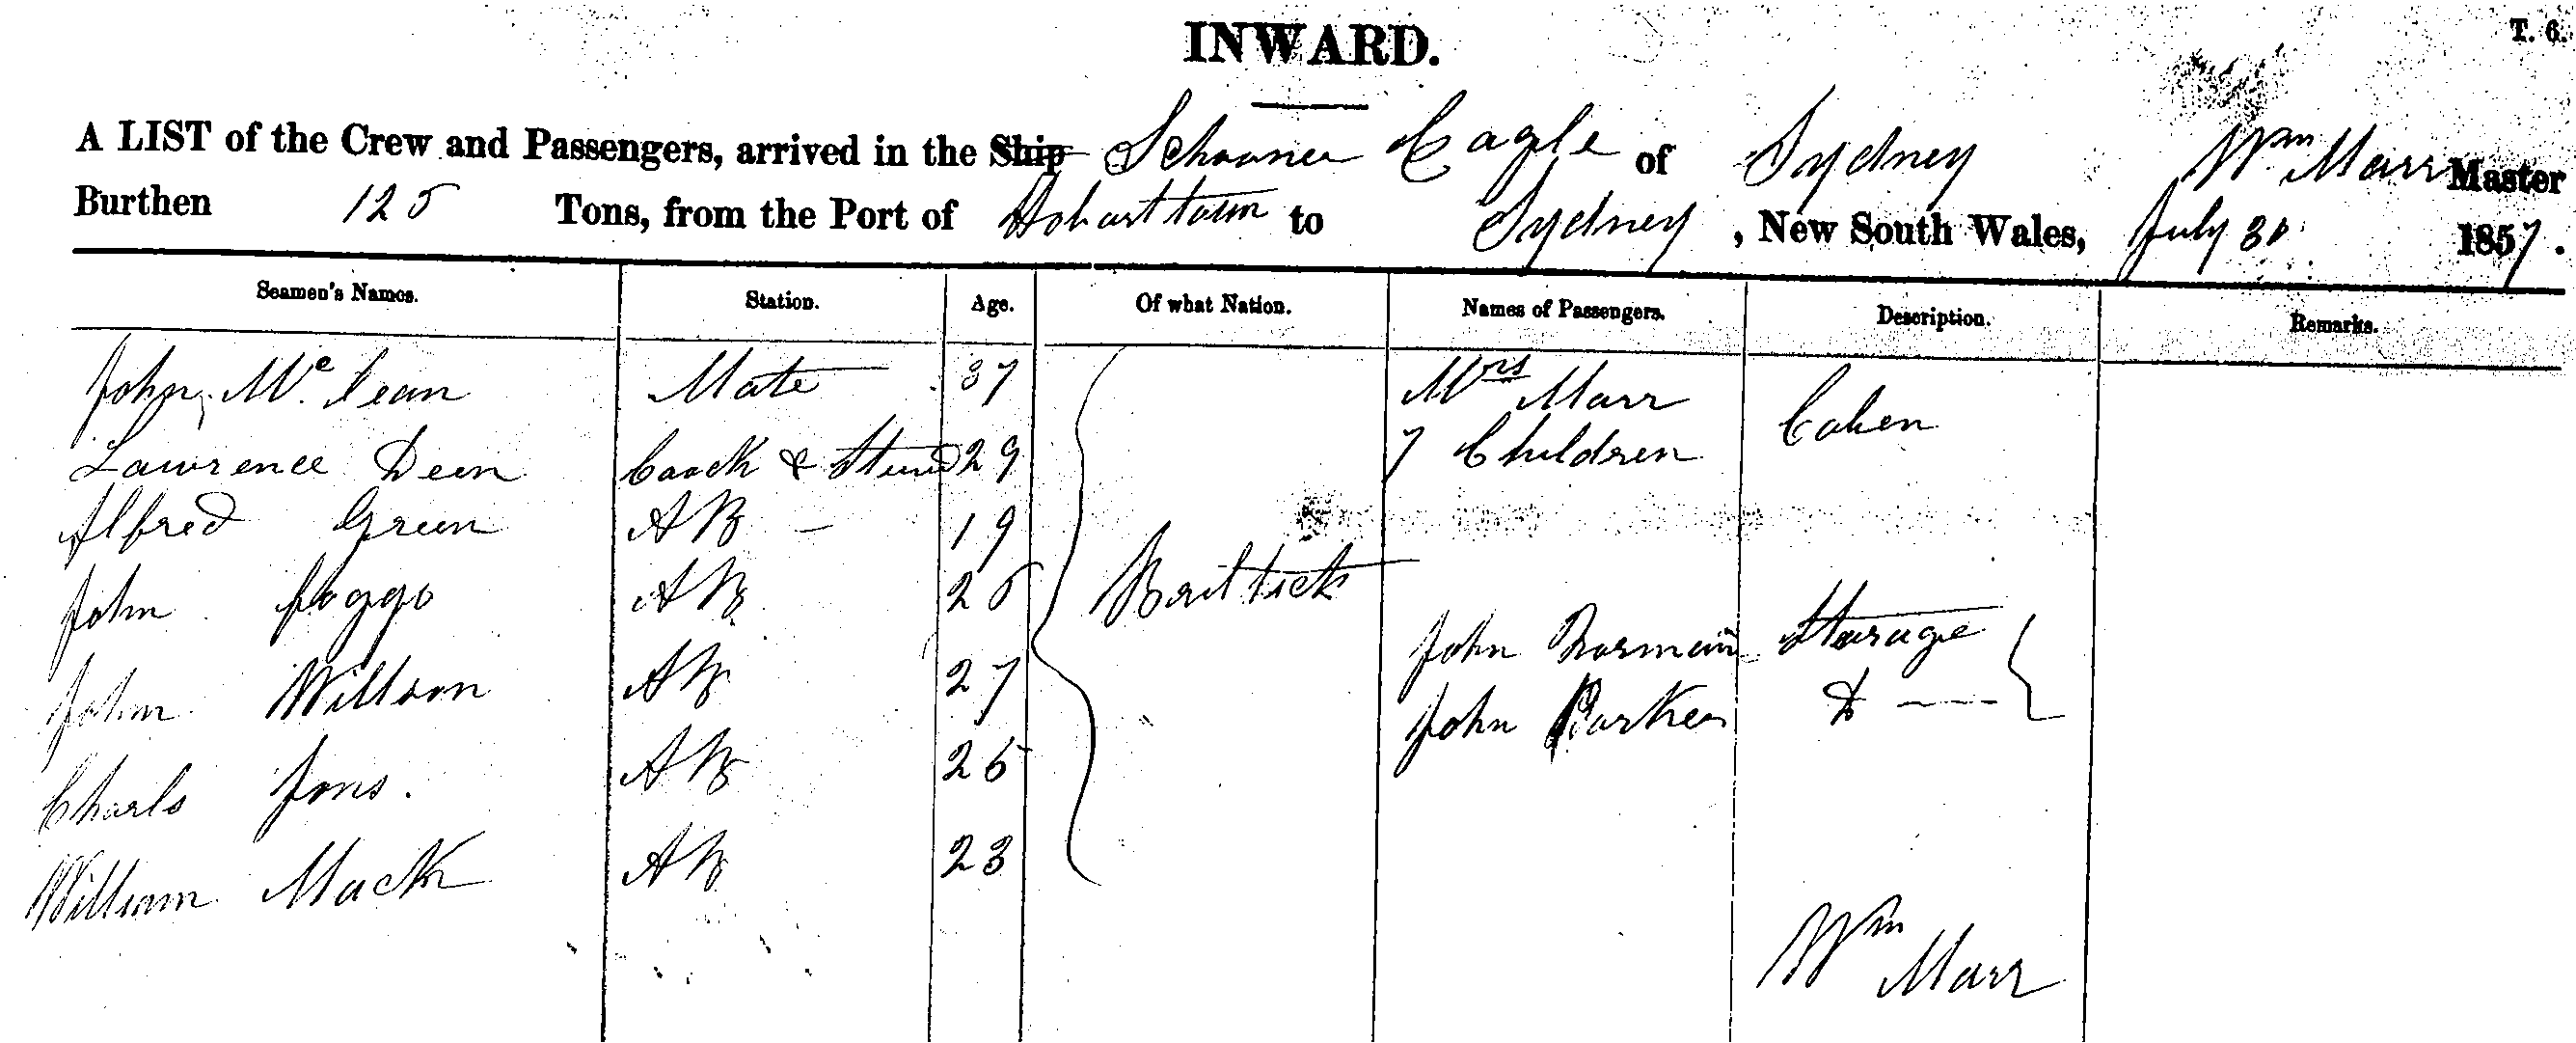 INWARD.
T. 6.
A LIST of the Crew and Passengers, arrived in the Ship Schooner Eagle of Sydney Wm Marr Master
Burthen 125 Tons, from the Port of Hobarttown to Sydney, New South Wales, July 30 1857.
Seamen's Names. Station. Age. Of what Nation. Names of Passengers. Description. Remarks.
John Mc Lean Mate 37 Mrs Marr
Lawrence Deen Coock & Stuard 29 7 Children Caben
Alfred Green AB 19
John AB 25 Brittish
John Willson AB 27 John Norman Starage
Charls Jons. AB 25 John Barker Do
William Mack AB 23
Wm Marr